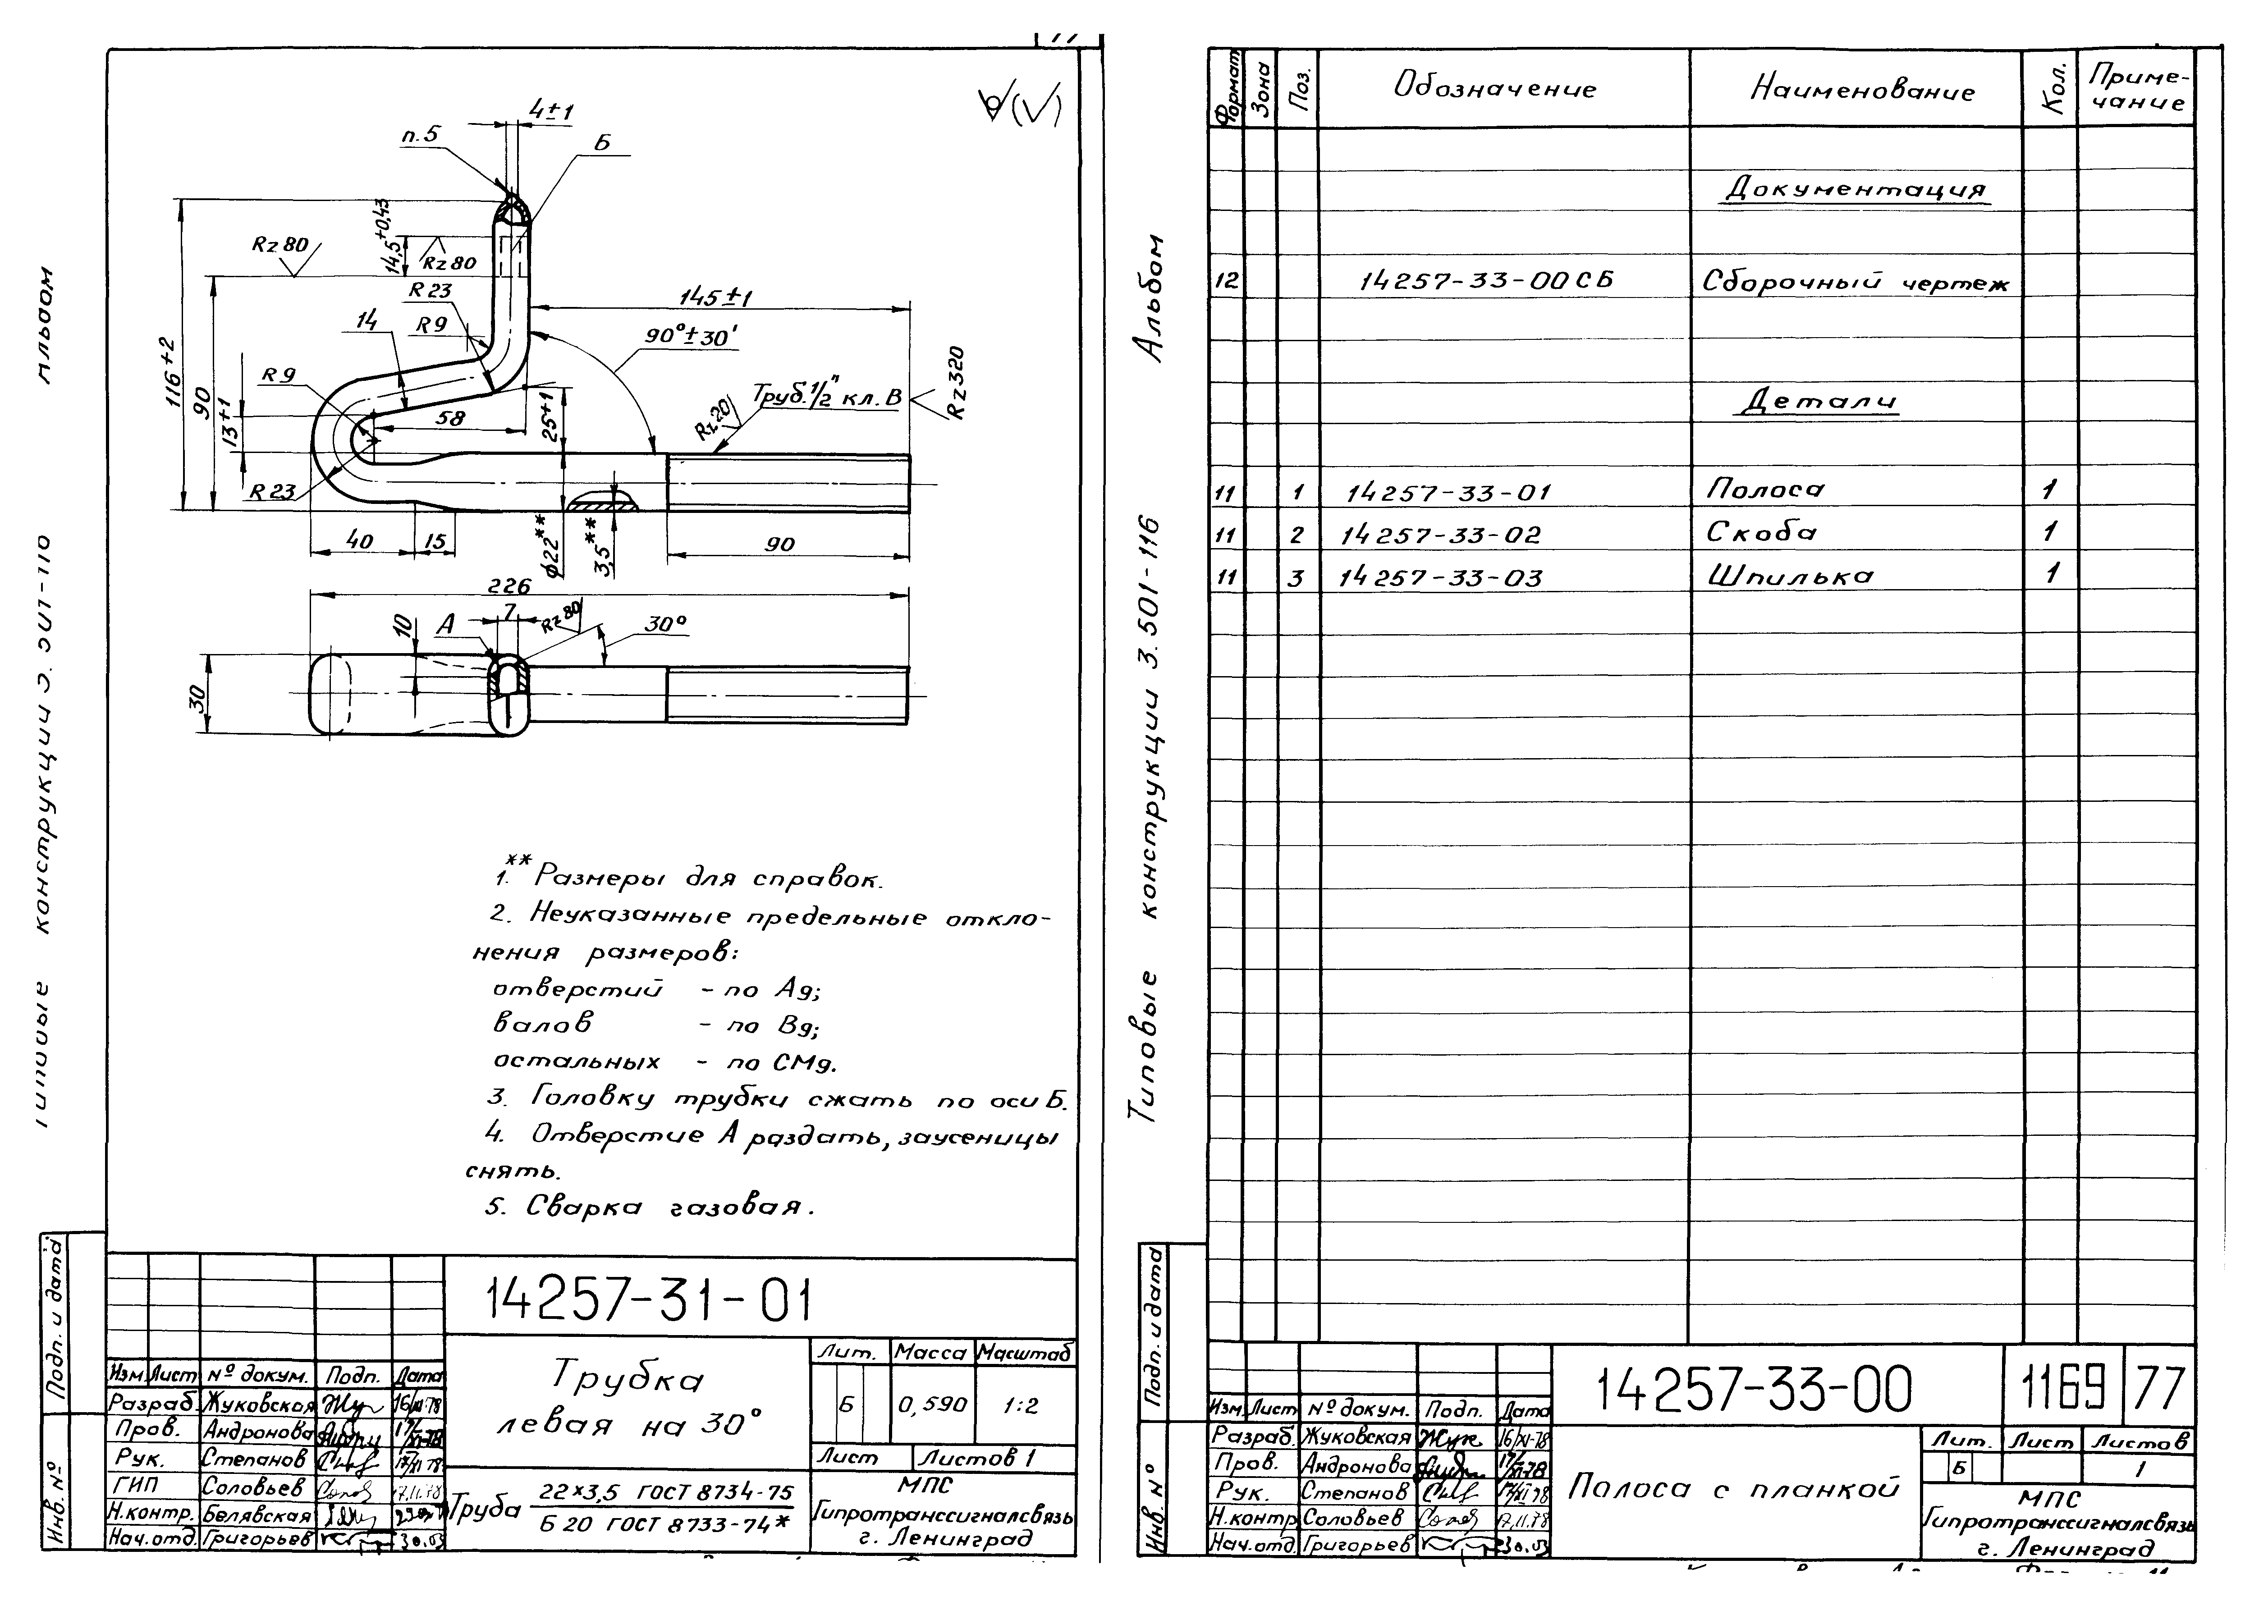 Альбом
Типовые конструкции 3.501-116
4±1
п.5
Б
116+2
90
13+1
14,5+0,43
Rz 80
Rz 80
R 23
R 9
14
R 9
58
R 23
25+1
145±1
90°±30'
Труб. 1/2" кл. В
Rz 20
Rz 320
40
15
ϕ22**
3,5**
90
226
7
Rz 80
30°
А
10
30
1.** Размеры для справок.
2. Неуказанные предельные откло-
нения размеров:
отверстий - по А9;
валов - по В9;
остальных - по СМ9.
3. Головку трубки сжать по оси Б.
4. Отверстие А раздать, заусеницы
снять.
5. Сварка газовая.
Подп. и дата
Инв. №
14257-31-01
Изм. Лист № докум. Подп. Дата
Разраб. Жуковская 16/XI-78
Пров. Андронова
Рук. Степанов 17/XI 78
ГИП Соловьев 17.11.78
Н.контр. Белявская
Нач.отд. Григорьев 30.03
Трубка
левая на 30°
Лит. Масса Масштаб
Б 0,590 1:2
Лист Листов 1
Труба 22×3,5 ГОСТ 8734-75
Б 20 ГОСТ 8733-74*
МПС
Гипротранссигналсвязь
г. Ленинград
Альбом
Типовые конструкции 3.501-116
Формат Зона Поз. Обозначение Наименование Кол. Приме-
чание
Документация
12 14257-33-00 СБ Сборочный чертеж
Детали
11 1 14257-33-01 Полоса 1
11 2 14257-33-02 Скоба 1
11 3 14257-33-03 Шпилька 1
Подп. и дата
Инв. №
14257-33-00 1169 77
Изм. Лист № докум. Подп. Дата
Разраб. Жуковская 16/XI-78
Пров. Андронова
Рук. Степанов 17/XI 78
Н.контр Соловьев 17.11.78
Нач.отд. Григорьев 30.03
Полоса с планкой
Лит. Лист Листов
Б 1
МПС
Гипротранссигналсвязь
г. Ленинград